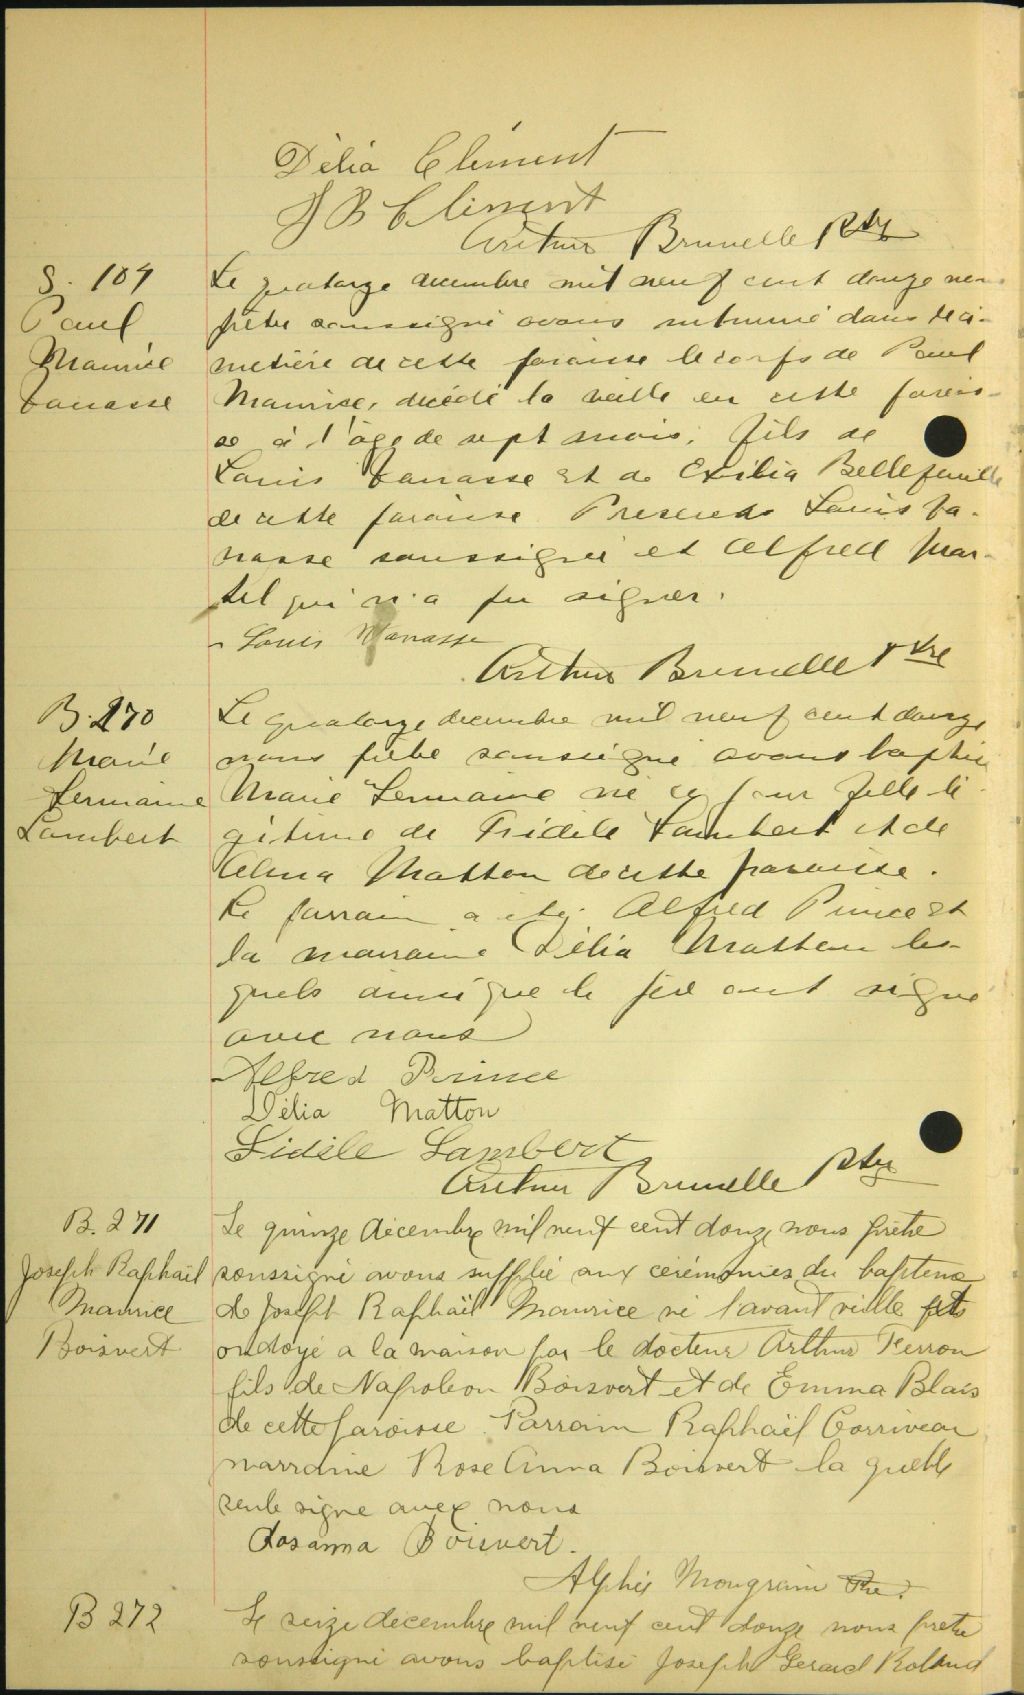 Délia Clément
J B Clément
Arthur Brunelle Ptre
S. 104
Paul
Maurice
Vanasse
Le quatorze decembre mil neuf cent douze nous
prêtre soussigné avons inhumé dans le ci-
metière de cette paroisse le corps de Paul
Maurice, décédé la veille en cette parois-
se à l'âge de sept mois, fils de
Louis Vanasse et de Exilia Bellefeuille
de cette paroisse Presents Louis Va-
nasse soussigné et Alfred Mar-
tel qui n'a pu signer.
Louis Vanasse
Arthur Brunelle Ptre
B. 270
Marie
Germaine
Lambert
Le quatorze decembre mil neuf cent douze
nous prêtre soussigné avons baptisé
Marie Germaine né ce jour fille lé-
gitime de Fidèle Lambert et de
Alma Matton de cette paroisse.
Le parrain a été Alfred Prince et
la marraine Délia Matton les-
quels ainsi que le père ont signé
avec nous
Alfred Prince
Délia Matton
Fidèle Lambert
Arthur Brunelle Ptre
B. 271
Joseph Raphaël
Maurice
Boisvert
Le quinze décembre mil neuf cent douze nous prêtre
soussigné avons supplée aux cérémonies du baptême
de Joseph Raphaël Maurice né l'avant veille
ondoyé a la maison par le docteur Arthur Ferron
fils de Napoleon Boisvert et de Emma Blais
de cette paroisse. Parrain Raphaël Corriveau
marraine Rose Anna Boisvert la quelle
seule signe avec nous
Rosanna Boisvert.
Alphée Mongrain Ptre.
B 272
Le seize décembre mil neuf cent douze nous pretre
soussigné avons baptisé Joseph Gerard Rolland